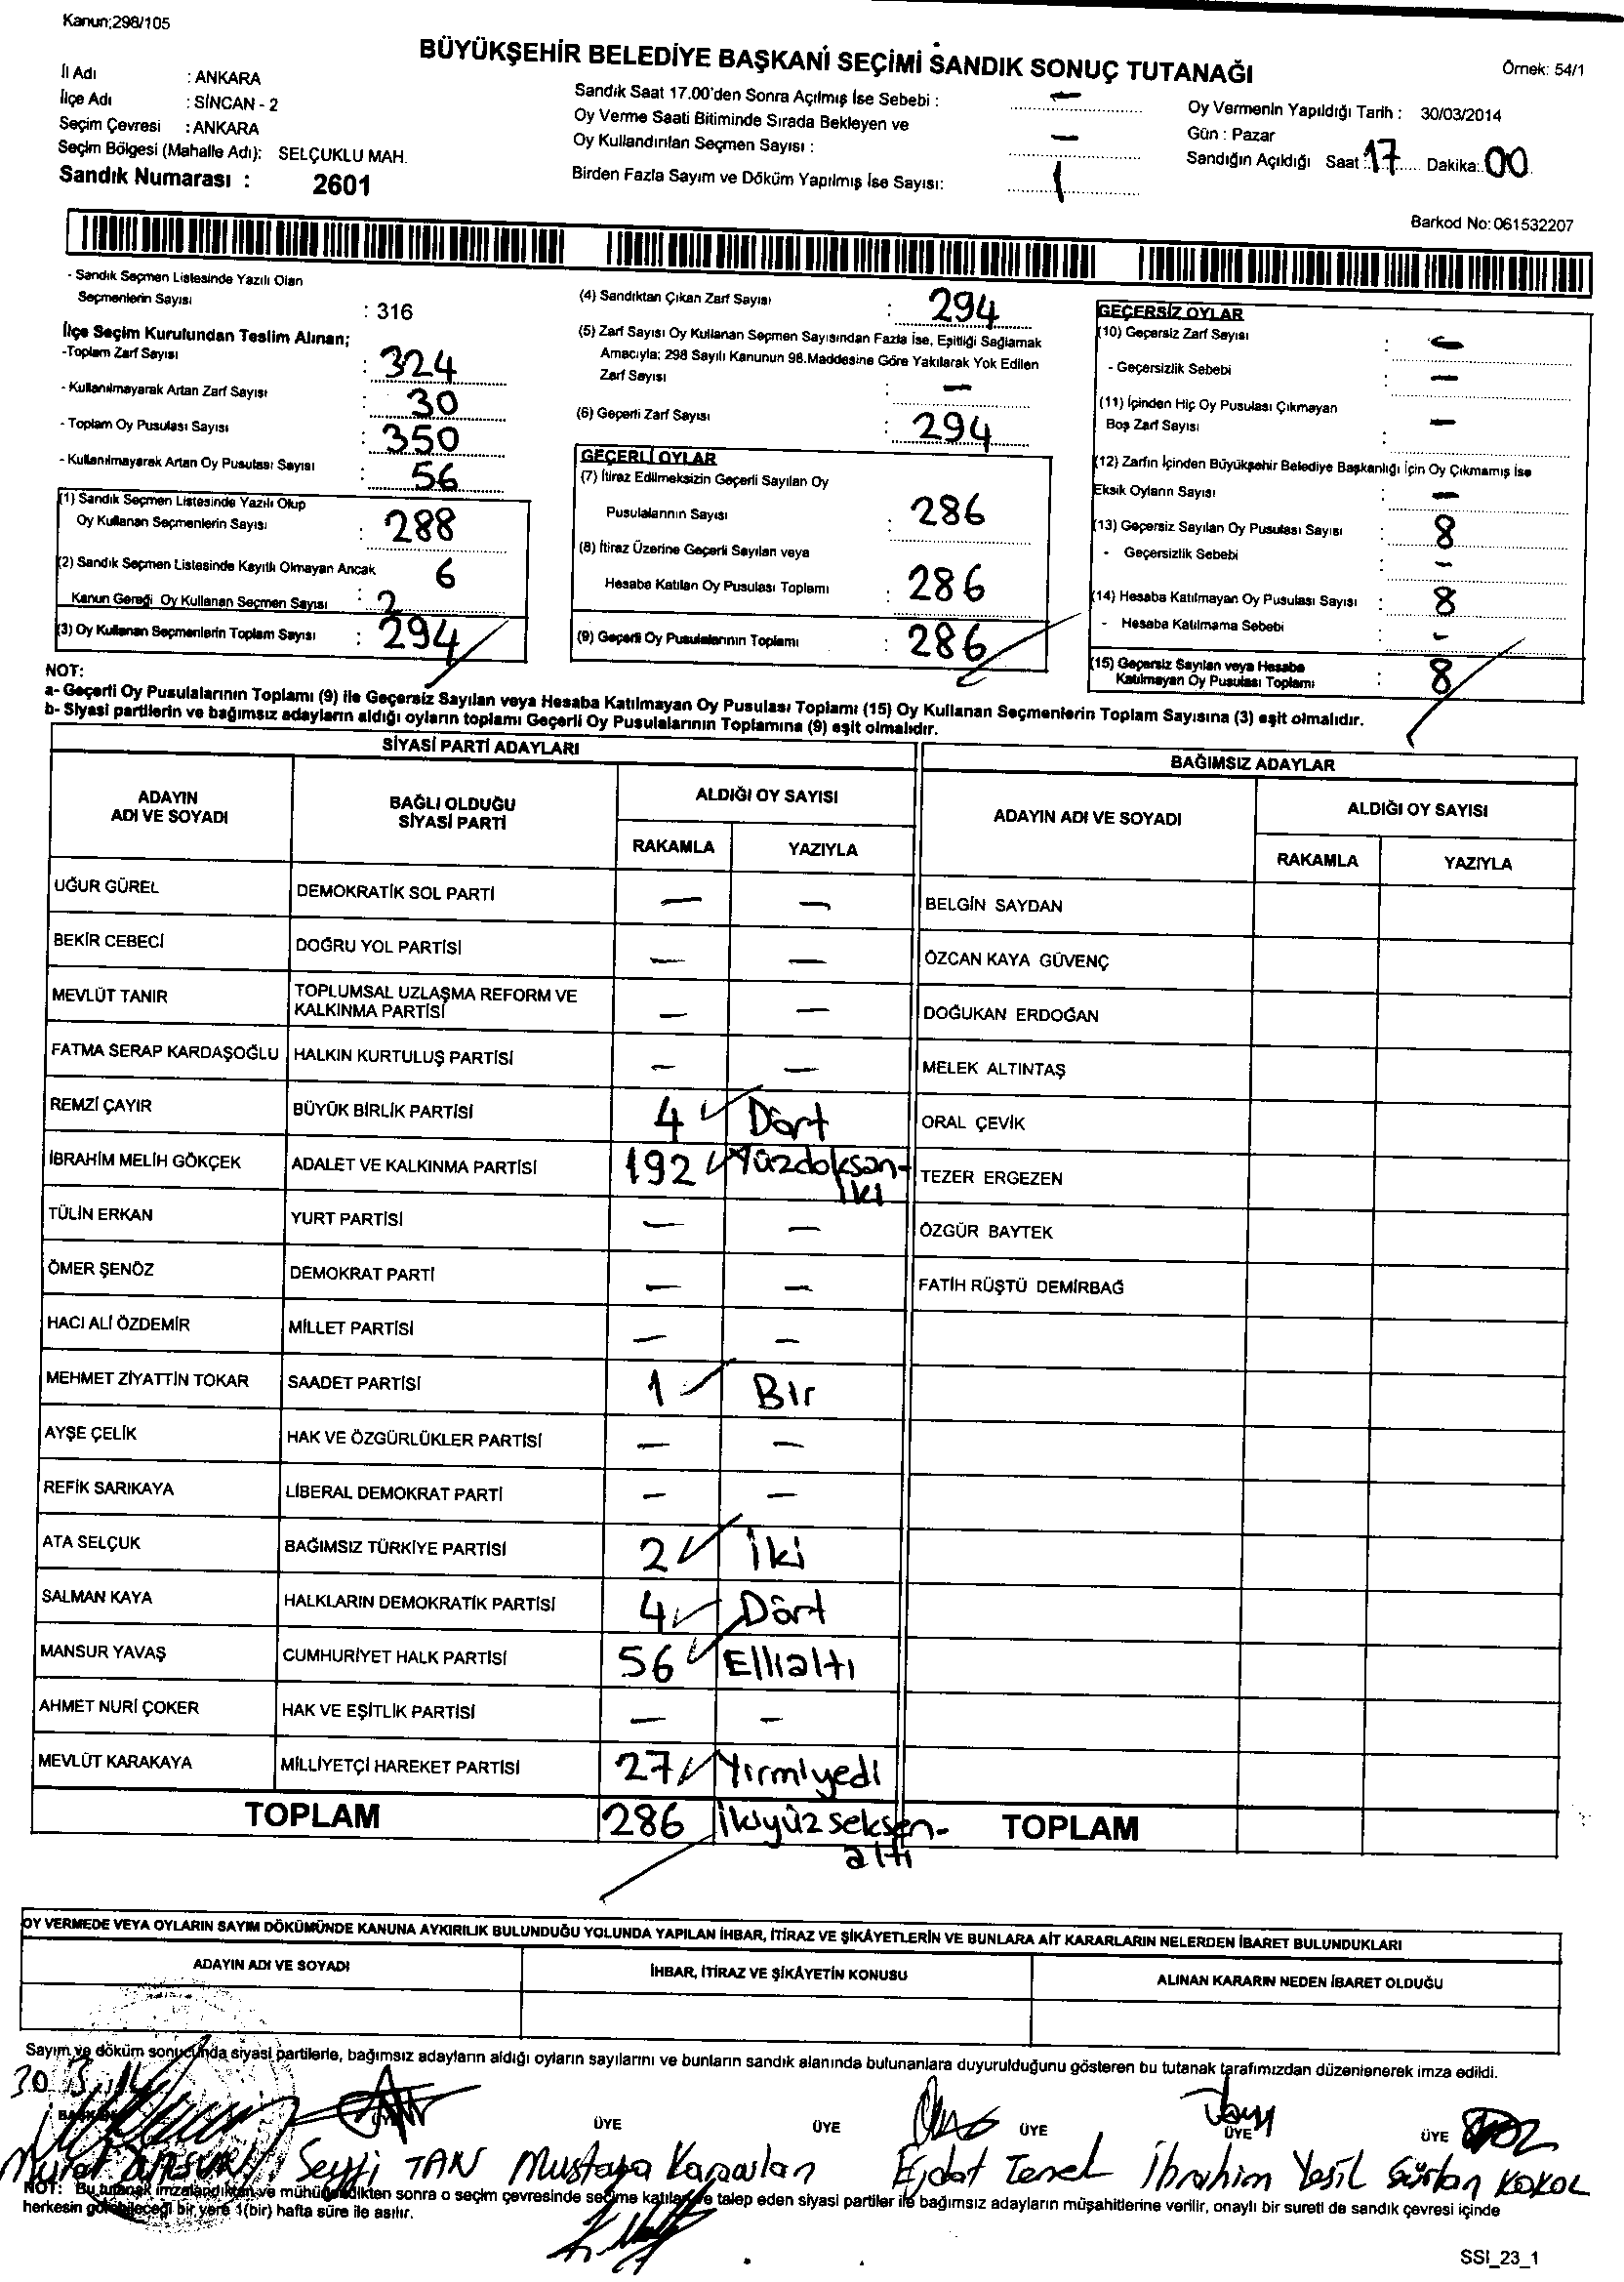 Kanun;298/105
BÜYÜKŞEHİR BELEDİYE BAŞKANI SEÇİMİ SANDIK SONUÇ TUTANAĞI
Örnek: 54/1
İl Adı : ANKARA
İlçe Adı : SİNCAN - 2
Seçim Çevresi : ANKARA
Seçim Bölgesi (Mahalle Adı): SELÇUKLU MAH.
Sandık Numarası : 2601
Sandık Saat 17.00'den Sonra Açılmış İse Sebebi : —
Oy Verme Saati Bitiminde Sırada Bekleyen ve
Oy Kullandırılan Seçmen Sayısı : —
Birden Fazla Sayım ve Döküm Yapılmış İse Sayısı: 1
Oy Vermenin Yapıldığı Tarih : 30/03/2014
Gün : Pazar
Sandığın Açıldığı Saat : 17 Dakika: 00
Barkod No: 061532207
- Sandık Seçmen Listesinde Yazılı Olan
Seçmenlerin Sayısı : 316
İlçe Seçim Kurulundan Teslim Alınan;
-Toplam Zarf Sayısı : 324
- Kullanılmayarak Artan Zarf Sayısı : 30
- Toplam Oy Pusulası Sayısı : 350
- Kullanılmayarak Artan Oy Pusulası Sayısı : 56
(1) Sandık Seçmen Listesinde Yazılı Olup
Oy Kullanan Seçmenlerin Sayısı : 288
(2) Sandık Seçmen Listesinde Kayıtlı Olmayan Ancak 6
Kanun Gereği Oy Kullanan Seçmen Sayısı : 2
(3) Oy Kullanan Seçmenlerin Toplam Sayısı : 294
(4) Sandıktan Çıkan Zarf Sayısı : 294
(5) Zarf Sayısı Oy Kullanan Seçmen Sayısından Fazla İse, Eşitliği Sağlamak
Amacıyla; 298 Sayılı Kanunun 98.Maddesine Göre Yakılarak Yok Edilen
Zarf Sayısı : —
(6) Geçerli Zarf Sayısı : 294
GEÇERLİ OYLAR
(7) İtiraz Edilmeksizin Geçerli Sayılan Oy
Pusulalarının Sayısı : 286
(8) İtiraz Üzerine Geçerli Sayılan veya
Hesaba Katılan Oy Pusulası Toplamı : 286
(9) Geçerli Oy Pusulalarının Toplamı : 286
GEÇERSİZ OYLAR
(10) Geçersiz Zarf Sayısı : —
- Geçersizlik Sebebi : —
(11) İçinden Hiç Oy Pusulası Çıkmayan
Boş Zarf Sayısı : —
(12) Zarfın İçinden Büyükşehir Belediye Başkanlığı İçin Oy Çıkmamış İse
Eksik Oyların Sayısı : —
(13) Geçersiz Sayılan Oy Pusulası Sayısı : 8
- Geçersizlik Sebebi : —
(14) Hesaba Katılmayan Oy Pusulası Sayısı : 8
- Hesaba Katılmama Sebebi : —
(15) Geçersiz Sayılan veya Hesaba
Katılmayan Oy Pusulası Toplamı : 8
NOT:
a- Geçerli Oy Pusulalarının Toplamı (9) ile Geçersiz Sayılan veya Hesaba Katılmayan Oy Pusulası Toplamı (15) Oy Kullanan Seçmenlerin Toplam Sayısına (3) eşit olmalıdır.
b- Siyasi partilerin ve bağımsız adayların aldığı oyların toplamı Geçerli Oy Pusulalarının Toplamına (9) eşit olmalıdır.
SİYASİ PARTİ ADAYLARI
ADAYIN ADI VE SOYADI BAĞLI OLDUĞU SİYASİ PARTİ ALDIĞI OY SAYISI
RAKAMLA YAZIYLA
UĞUR GÜREL DEMOKRATİK SOL PARTİ — —
BEKİR CEBECİ DOĞRU YOL PARTİSİ — —
MEVLÜT TANIR TOPLUMSAL UZLAŞMA REFORM VE KALKINMA PARTİSİ — —
FATMA SERAP KARDAŞOĞLU HALKIN KURTULUŞ PARTİSİ — —
REMZİ ÇAYIR BÜYÜK BİRLİK PARTİSİ 4 Dört
İBRAHİM MELİH GÖKÇEK ADALET VE KALKINMA PARTİSİ 192 Yüzdoksan-iki
TÜLİN ERKAN YURT PARTİSİ — —
ÖMER ŞENÖZ DEMOKRAT PARTİ — —
HACI ALİ ÖZDEMİR MİLLET PARTİSİ — —
MEHMET ZİYATTİN TOKAR SAADET PARTİSİ 1 Bir
AYŞE ÇELİK HAK VE ÖZGÜRLÜKLER PARTİSİ — —
REFİK SARIKAYA LİBERAL DEMOKRAT PARTİ — —
ATA SELÇUK BAĞIMSIZ TÜRKİYE PARTİSİ 2 İki
SALMAN KAYA HALKLARIN DEMOKRATİK PARTİSİ 4 Dört
MANSUR YAVAŞ CUMHURİYET HALK PARTİSİ 56 Ellialtı
AHMET NURİ ÇOKER HAK VE EŞİTLİK PARTİSİ — —
MEVLÜT KARAKAYA MİLLİYETÇİ HAREKET PARTİSİ 27 Yirmiyedi
TOPLAM 286 İkiyüz seksen-altı
BAĞIMSIZ ADAYLAR
ADAYIN ADI VE SOYADI ALDIĞI OY SAYISI
RAKAMLA YAZIYLA
BELGİN SAYDAN
ÖZCAN KAYA GÜVENÇ
DOĞUKAN ERDOĞAN
MELEK ALTINTAŞ
ORAL ÇEVİK
TEZER ERGEZEN
ÖZGÜR BAYTEK
FATİH RÜŞTÜ DEMİRBAĞ
TOPLAM
OY VERMEDE VEYA OYLARIN SAYIM DÖKÜMÜNDE KANUNA AYKIRILIK BULUNDUĞU YOLUNDA YAPILAN İHBAR, İTİRAZ VE ŞİKÂYETLERİN VE BUNLARA AİT KARARLARIN NELERDEN İBARET BULUNDUKLARI
ADAYIN ADI VE SOYADI İHBAR, İTİRAZ VE ŞİKÂYETİN KONUSU ALINAN KARARIN NEDEN İBARET OLDUĞU
Sayım ve döküm sonucunda siyasi partilerle, bağımsız adayların aldığı oyların sayılarını ve bunların sandık alanında bulunanlara duyurulduğunu gösteren bu tutanak tarafımızdan düzenlenerek imza edildi.
30.3.14
BAŞKAN ÜYE ÜYE ÜYE ÜYE ÜYE ÜYE
Murat Seyfi TAN Mustafa Karaarslan Ejdat Temel İbrahim Yeşil KOKOL
NOT: Bu tutanak imzalandıktan ve mühürlendikten sonra o seçim çevresinde seçime katılan ve talep eden siyasi partiler ile bağımsız adayların müşahitlerine verilir, onaylı bir sureti de sandık çevresi içinde
herkesin görebileceği bir yere 1(bir) hafta süre ile asılır.
SSI_23_1